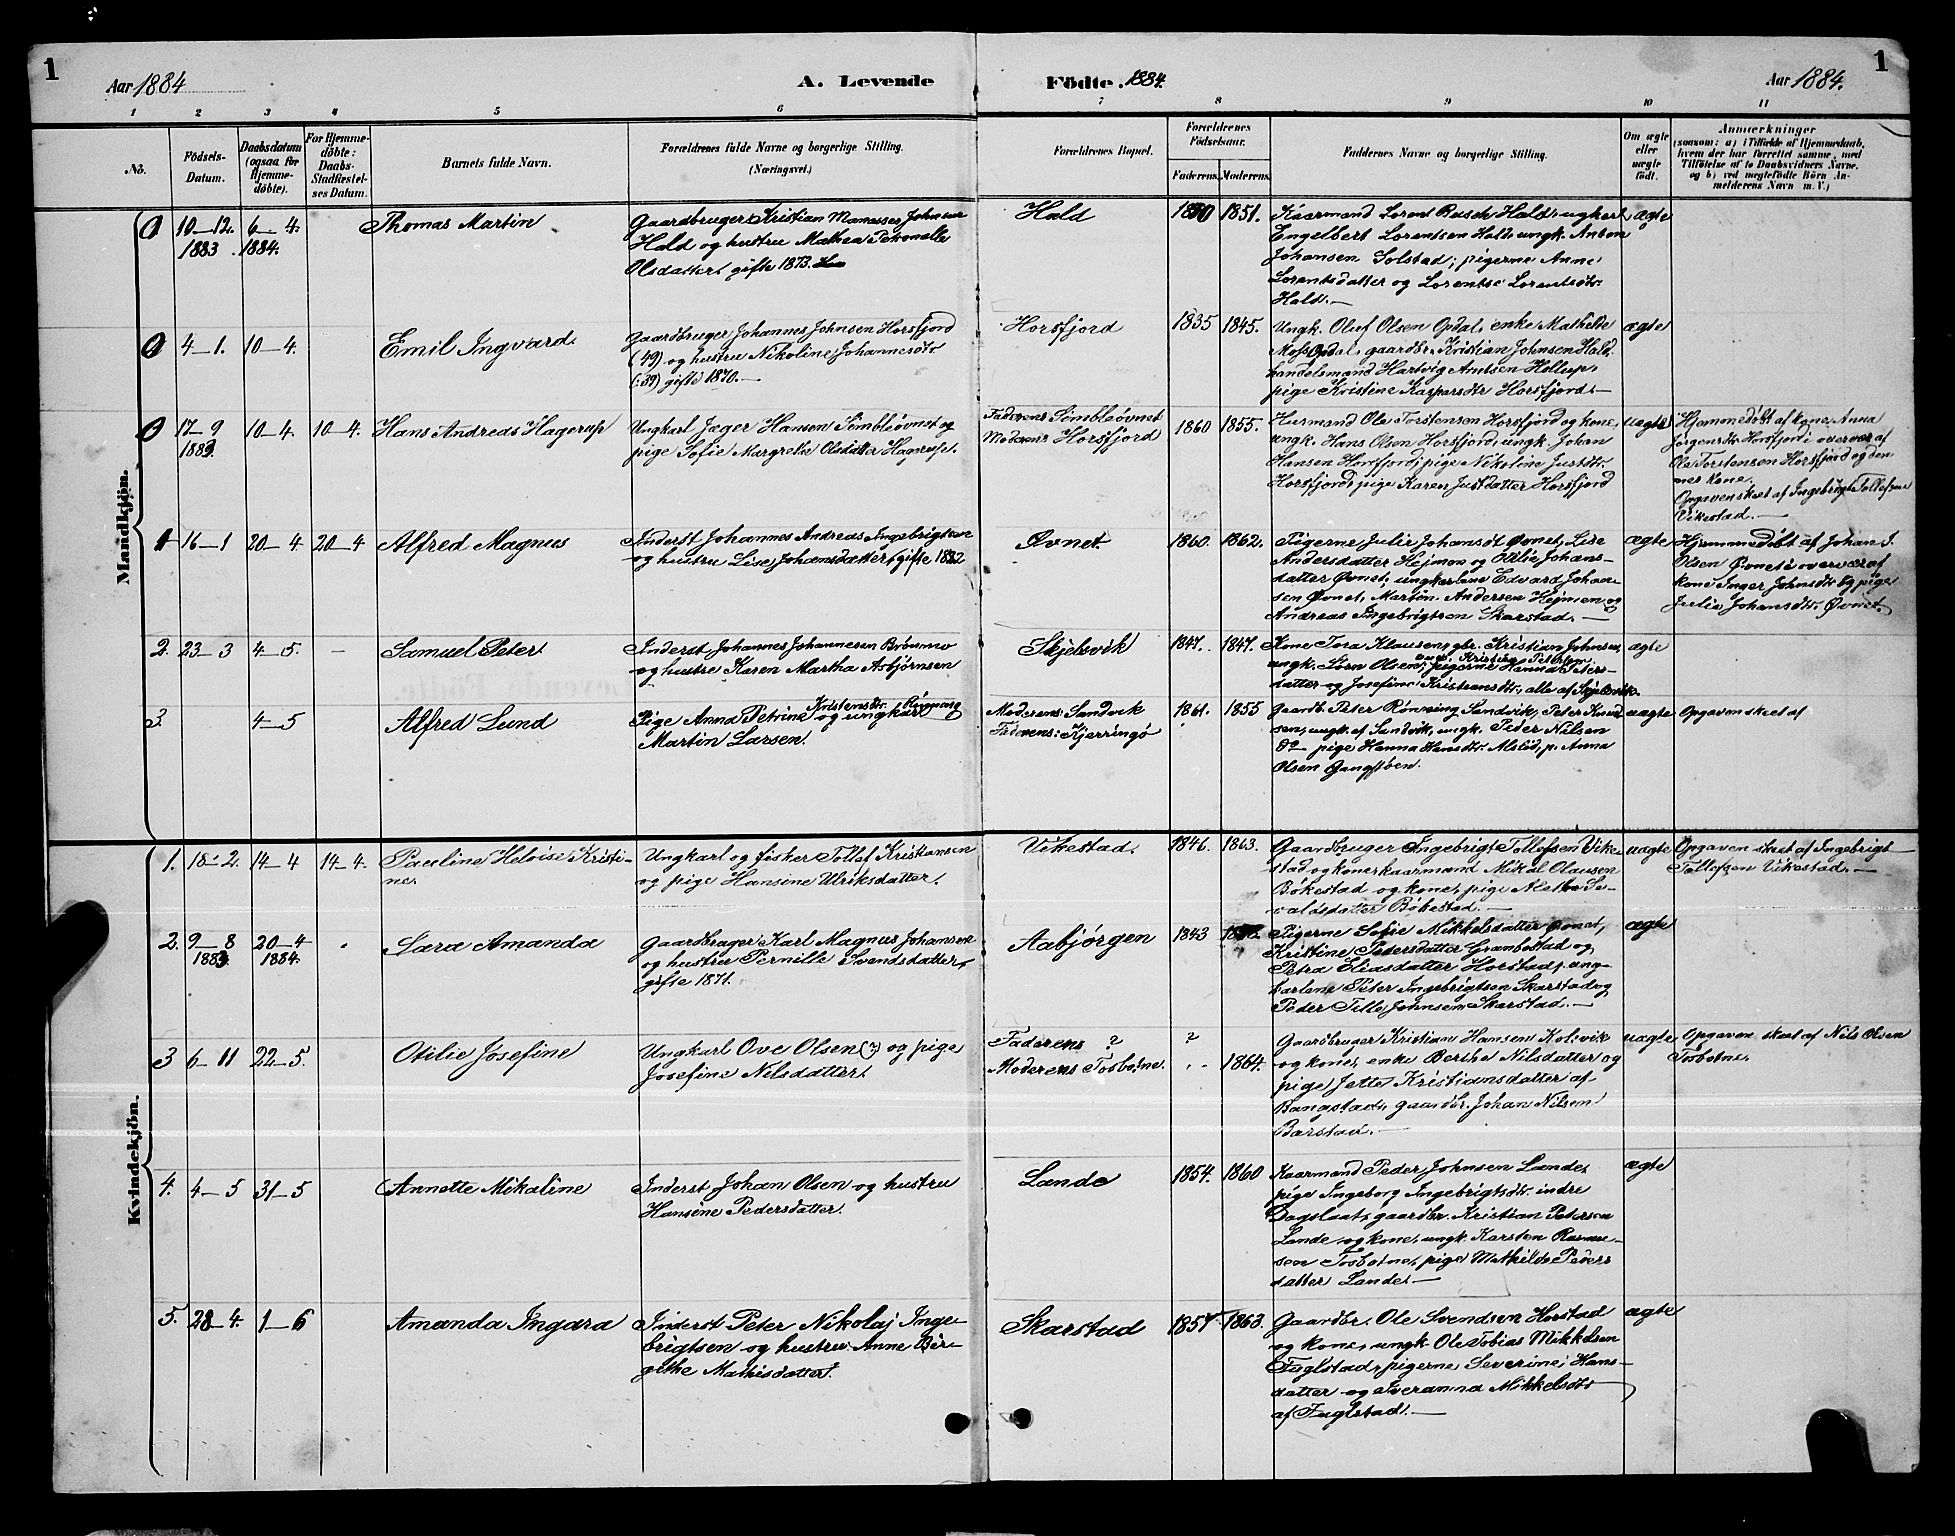 1
Aar 1884
A. Levende
Födte. 1884.
Aar 1884.
1
1 2 3 4 5 6 7 8 9 10 11
No.
Födsels-
Datum.
Daabsdatum
(ogsaa for
Hjemme-
døbte).
For Hjemme-
døbte:
Daabs-
Stadfæstel-
ses Datum.
Barnets fulde Navn.
Forældrenes fulde Navne og borgerlige Stilling.
(Næringsvei.)
Forældrenes Bopæl.
Forældrenes
Födselsaar.
Faderens. Moderens.
Faddernes Navne og borgerlige Stilling.
Om ægte
eller
uægte
födt.
Anmærkninger
(saasom: a) i Tilfælde af Hjemmedaab,
hvem der har forrettet samme, med
Tilföielse af to Daabsvidners Navne.
og b) ved uægtefödte Börn An-
melderens Navn m. V.)
Mandkjön.
0 10–12. 1883 6–4. 1884. Thomas Martin
Gaardbruger Kristian Manasses Johnsen
Hald og hustru Mathea Petronelle
Olsdatter, gifte 1873.
Hald 1851.
Kaarmand Lorent Busch Hald, ugkarl
Engelbert Lorentsen Hald, ungk. Anton
Johansen Solstad; pigerne Anne
Lorentsdatter og Lorentse Lorentsdtr.
Hald.—
ægte
0 4–1. 10–4. Emil Ingvard.
Gaardbruger Johannes Johnsen Horsfjord
(49) og hustru Nikoline Johannesdtr.
(:39) gifte 1870.—
Horsfjord 1835 1845.
Ungk. Oluf Olsen Opdal, enke Mathilde
Moss Opdal, gaardbr. Kristian Johnsen Hald,
handelsmand Hartvig Amtsen Hellup,
pige Kristine Kaspersdtr Horsfjord.—
ægte
0 17–9 1883 10–4. 10–4. Hans Andreas Hagerup
Ungkarl Jæger Hansen Simbleövnet og
pige Sofie Margrethe Olsdatter Hagerup.
Faderens Simbleövnet
Moderens Horsfjord
1860 1855.
Husmand Ole Torstensen Horsfjord og kone,
ungk. Hans Olsen Horsfjord, ungk. Johan
Hansen Horsfjord; pige Nikoline Justdtr.
Horsfjord, pige Karen Justdatter Horsfjord
uægte
Hjemmedöbt af kone Anna
Jörgensdtr. Horsfjord i overvær af
Ole Torstensen Horsfjord og den-
nes kone.
Opgaven skeet af Ingebrigt Tollefsen
Vikestad.—
1 16–1 20–4 20–4 Alfred Magnus
Inderst Johannes Andreas Ingebrigtsen
og hustru Lise Johansdatter, gifte 1882
Övnet. 1860. 1862.
Pigerne Julie Johansdt Övnet, Lise
Andersdatter Hejmon og Otilie Johans-
datter Övnet, ungkarlene Edvard Johan-
sen Övnet, Martin Andersen Hejmen og
Andreas Ingebrigtsen Skarstad.—
ægte
Hjemmedöbt af Johan I.
Olsen Övnet i overvær af
kone Inger Johnsdtr. og pige
Julie Johansdtr. Övnet.
2. 23–3 4–5. – Samuel Peter.
Inderst Johannes Johannesen Brönmo
og hustru Karen Martha Asbjörnsen
Skjelsvik 1847. 1847.
Kone Tora Klausen, gbr. Kristian Johnsen,
ungk. Sörn Olsen, pigerne Hanna Peters-
datter og Josefine Kristiansdtr., alle af Skjelsvik.
ægte
3. 4–5 Alfred Lund
Pige Anna Petrine Kristensdtr. Rönning og ungkarl
Martin Larsen.
Moderens: Sandvik
Faderens: Kjerringö
1861. 1855
Gaardb. Peter Rönning Sandvik, Peter Knud-
sen, ungk. af Sandvik, ungk. Peder Nilsen
do pige Hanna Hansdtr. Alstid, p. Anna
Olsen Gangstöen.
uægte
Opgaven skeet af
Kvindekjön.
1. 18–2. 14–4 14–4. Pauline Heloise Kristi-
ne.
Ungkarl og fisker Tollef Kristiansen
og pige Hansine Ulriksdatter.
Vikestad. 1846. 1863.
Gaardbruger Ingebrigt Tollefsen Vike-
stad og kone, kaarmand Mikal Olausen
Bökestad og kone, pige Alethe Se-
valdsdatter Bökestad.—
uægte
Opgaven skeet af Ingebrigt
Tollefsen Vikestad.—
2. 9–8 1883. 20–4 1884. Sara Amanda
Gaardbruger Karl Magnus Johansen
og hustru Pernille Svendsdatter,
gifte 1871.
Aabjørgen 1843
Pigerne Sofie Mikkelsdatter Övnet,
Kristine Pedersdatter Grambostad og
Petra Eliasdatter Horstad, ung-
karlene Peter Ingebrigtsen Skarstad og
Peder Tille Johnsen Skarstad.—
ægte
3 6–11 22–5. Otilie Josefine
Ungkarl Ove Olsen (?) og pige
Josefine Nilsdatter.
Faderens ? ?
Moderens Tosbotne. 1864.
Gaardbruger Kristian Hansen Kolsvik
og kone, enke Berthe Nilsdatter og
pige Jette Kristiansdatter af
Bangstad, gaardbr. Johan Nilsen
Barstad.—
uægte
Opgaven skeet af Nils Olsen
Tosbotne.
4. 4–5 31–5 Annette Mikaline
Inderst Johan Olsen og hustru
Hansine Pedersdatter.
Lande 1854. 1860
Kaarmand Peder Johnsen Lande,
pige Ingeborg Ingebrigtsdtr. indre
Dagslaat, gaardbr. Kristian Petersen
Lande og kone, ungk. Karsten Rasmu-
sen Tosbotne, pige Mathilde Peders-
datter Lande.—
ægte
5. 28–4. 1–6 Amanda Ingara
Inderst Peter Nikolaj Inge-
brigtsen og hustru Anne Bir-
githe Mathisdatter.
Skarstad 1857 1863.
Gaardbr. Ole Svendsen Horstad
og kone, ungk. Ole Tobias Mikkelsen
Fuglstad, pigerne Severine Hans-
datter og Iveranna Mikkelsdtr
af Fuglstad.—
ægte